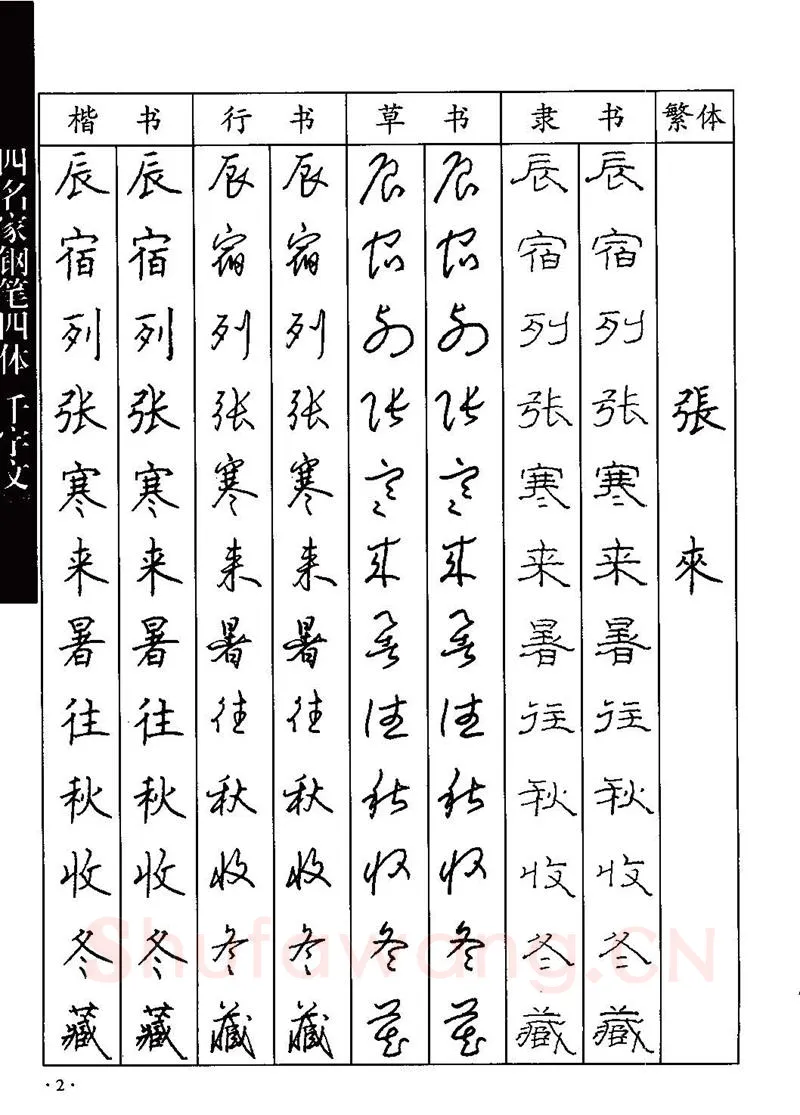 四名家钢笔四体 千字文
楷书 行书 草书 隶书 繁体
辰 辰 辰 辰 辰 辰 辰 辰
宿 宿 宿 宿 宿 宿 宿 宿
列 列 列 列 列 列 列 列
张 张 张 张 张 张 张 张 張
寒 寒 寒 寒 寒 寒 寒 寒
来 来 来 来 来 来 来 来 來
暑 暑 暑 暑 暑 暑 暑 暑
往 往 往 往 往 往 往 往
秋 秋 秋 秋 秋 秋 秋 秋
收 收 收 收 收 收 收 收
冬 冬 冬 冬 冬 冬 冬 冬
藏 藏 藏 藏 藏 藏 藏 藏
Shufawang.CN
·2·